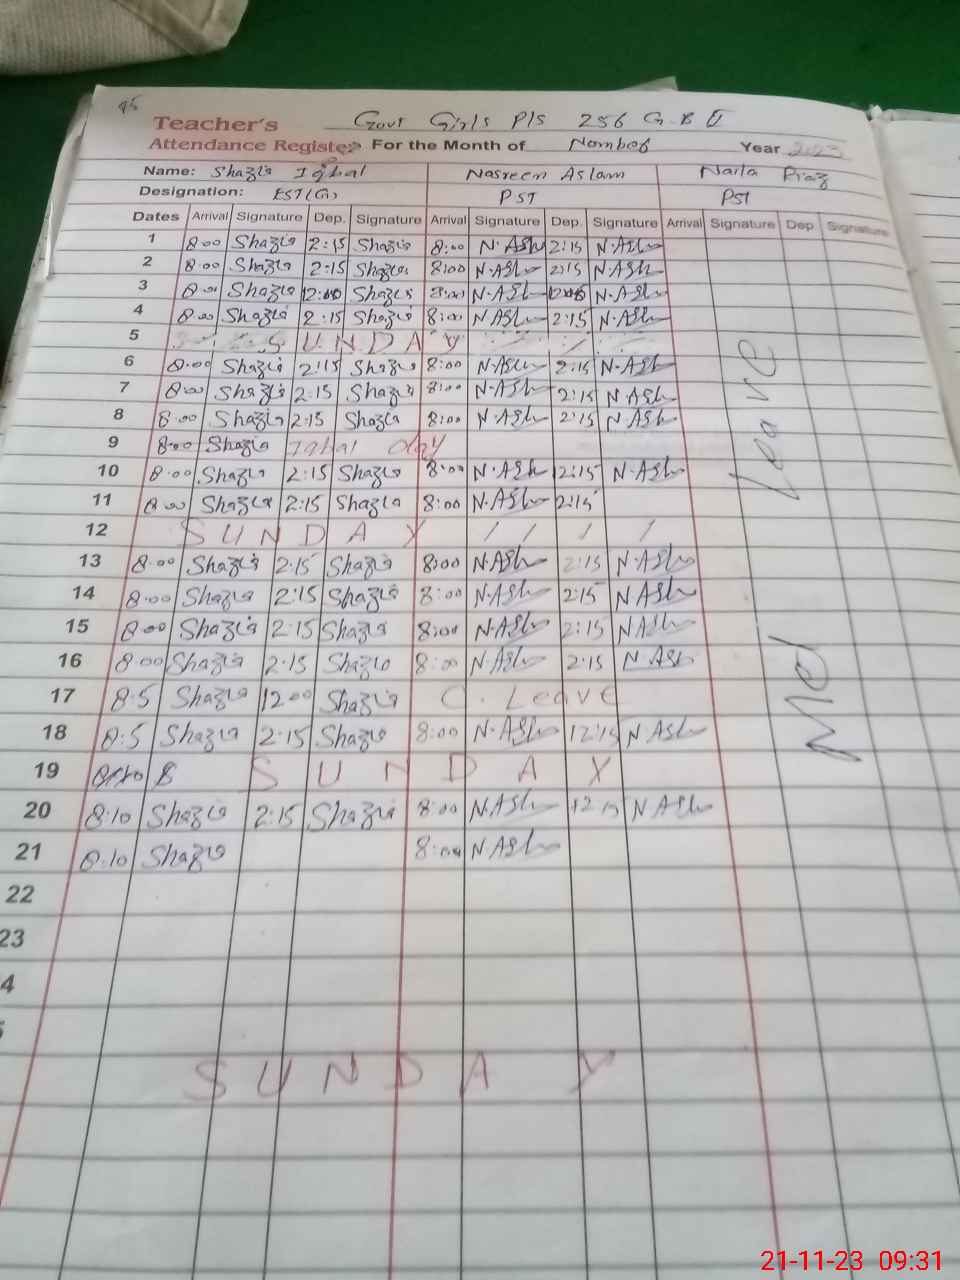 95
Teacher's Govt Girls P/S 256 G.B II
Attendance Register For the Month of Nombob Year 2023
Name: Shazia Iqbal Nasreen Aslam Naila Riaz
Designation: EST(G) PST PST
Dates Arrival Signature Dep. Signature Arrival Signature Dep. Signature Arrival Signature Dep Signature
1 8:00 Shazia 2:15 Shazia 8:00 N.Aslm 2:15 N.Aslm
2 8:00 Shazia 2:15 Shazia 8:00 N.Aslm 2:15 N.Aslm
3 8:00 Shazia 12:00 Shazia 8:00 N.Aslm N.Aslm
4 8:00 Shazia 2:15 Shazia 8:00 N.Aslm 2:15 N.Aslm
5 SUNDAY / /
6 8:00 Shazia 2:15 Shazia 8:00 N.Aslm 2:15 N.Aslm
7 8:00 Shazia 2:15 Shazia 8:00 N.Aslm 2:15 N.Aslm
8 8:00 Shazia 2:15 Shazia 8:00 N.Aslm 2:15 N.Aslm
9 8:00 Shazia Iqbal day
10 8:00 Shazia 2:15 Shazia 8:00 N.Aslm 2:15 N.Aslm
11 8:00 Shazia 2:15 Shazia 8:00 N.Aslm 2:15
12 SUNDAY / / / /
13 8:00 Shazia 2:15 Shazia 8:00 N.Aslm 2:15 N.Aslm
14 8:00 Shazia 2:15 Shazia 8:00 N.Aslm 2:15 N.Aslm
15 8:00 Shazia 2:15 Shazia 8:00 N.Aslm 2:15 N.Aslm
16 8:00 Shazia 2:15 Shazia 8:00 N.Aslm 2:15 N.Aslm
17 8:5 Shazia 12:00 Shazia C. Leave
18 8:5 Shazia 2:15 Shazia 8:00 N.Aslm 12:15 N.Aslm
19 SUNDAY
20 8:10 Shazia 2:15 Shazia 8:00 N.Aslm 12:15 N.Aslm
21 8:10 Shazia 8:00 N.Aslm
22
23
4
SUNDAY
Met Leave
21-11-23 09:31